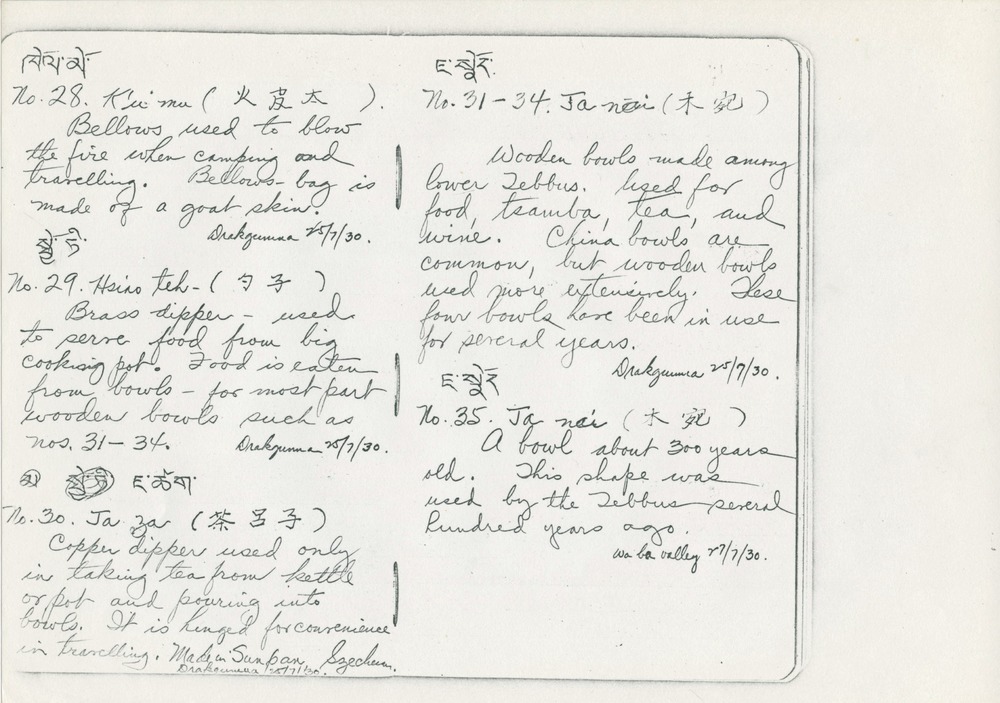 No. 28. K'ü mu ( 火 皮 太 ).
Bellows used to blow
the fire when camping and
travelling. Bellows-bag is
made of a goat skin.
Drakgumna 25/7/30.
No. 29. Hsiao teh- ( 勺 子 )
Brass dipper - used
to serve food from big
cooking pot. Food is eaten
from bowls - for most part
wooden bowls such as
nos. 31-34.
Drakgumna 25/7/30.
No. 30. Ja za ( 茶 呂 子 )
Copper dipper used only
in taking tea from kettle
or pot and pouring into
bowls. It is hinged for convenience
in travelling. Made in Sunpan, Szechuan.
Drakgumna 25/7/30.
No. 31-34. Ja nai ( 木 )
Wooden bowls made among
lower Tebbus. Used for
food, tsamba, tea, and
wine. China bowls are
common, but wooden bowls
used more extensively. These
four bowls have been in use
for several years.
Drakgumna 25/7/30.
No. 35. Ja nai ( 木 )
A bowl about 300 years
old. This shape was
used by the Tebbus several
hundred years ago.
wa ba valley 27/7/30.